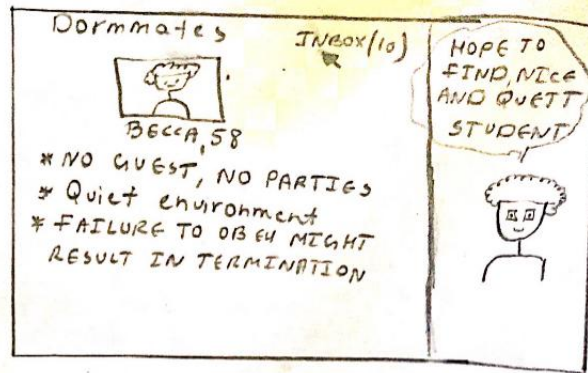 Dormmates
INBOX(10)
BECCA, 58
* NO GUEST, NO PARTIES
* Quiet environment
* FAILURE TO OBEY MIGHT
RESULT IN TERMINATION
HOPE TO
FIND, NICE
AND QUETT
STUDENT